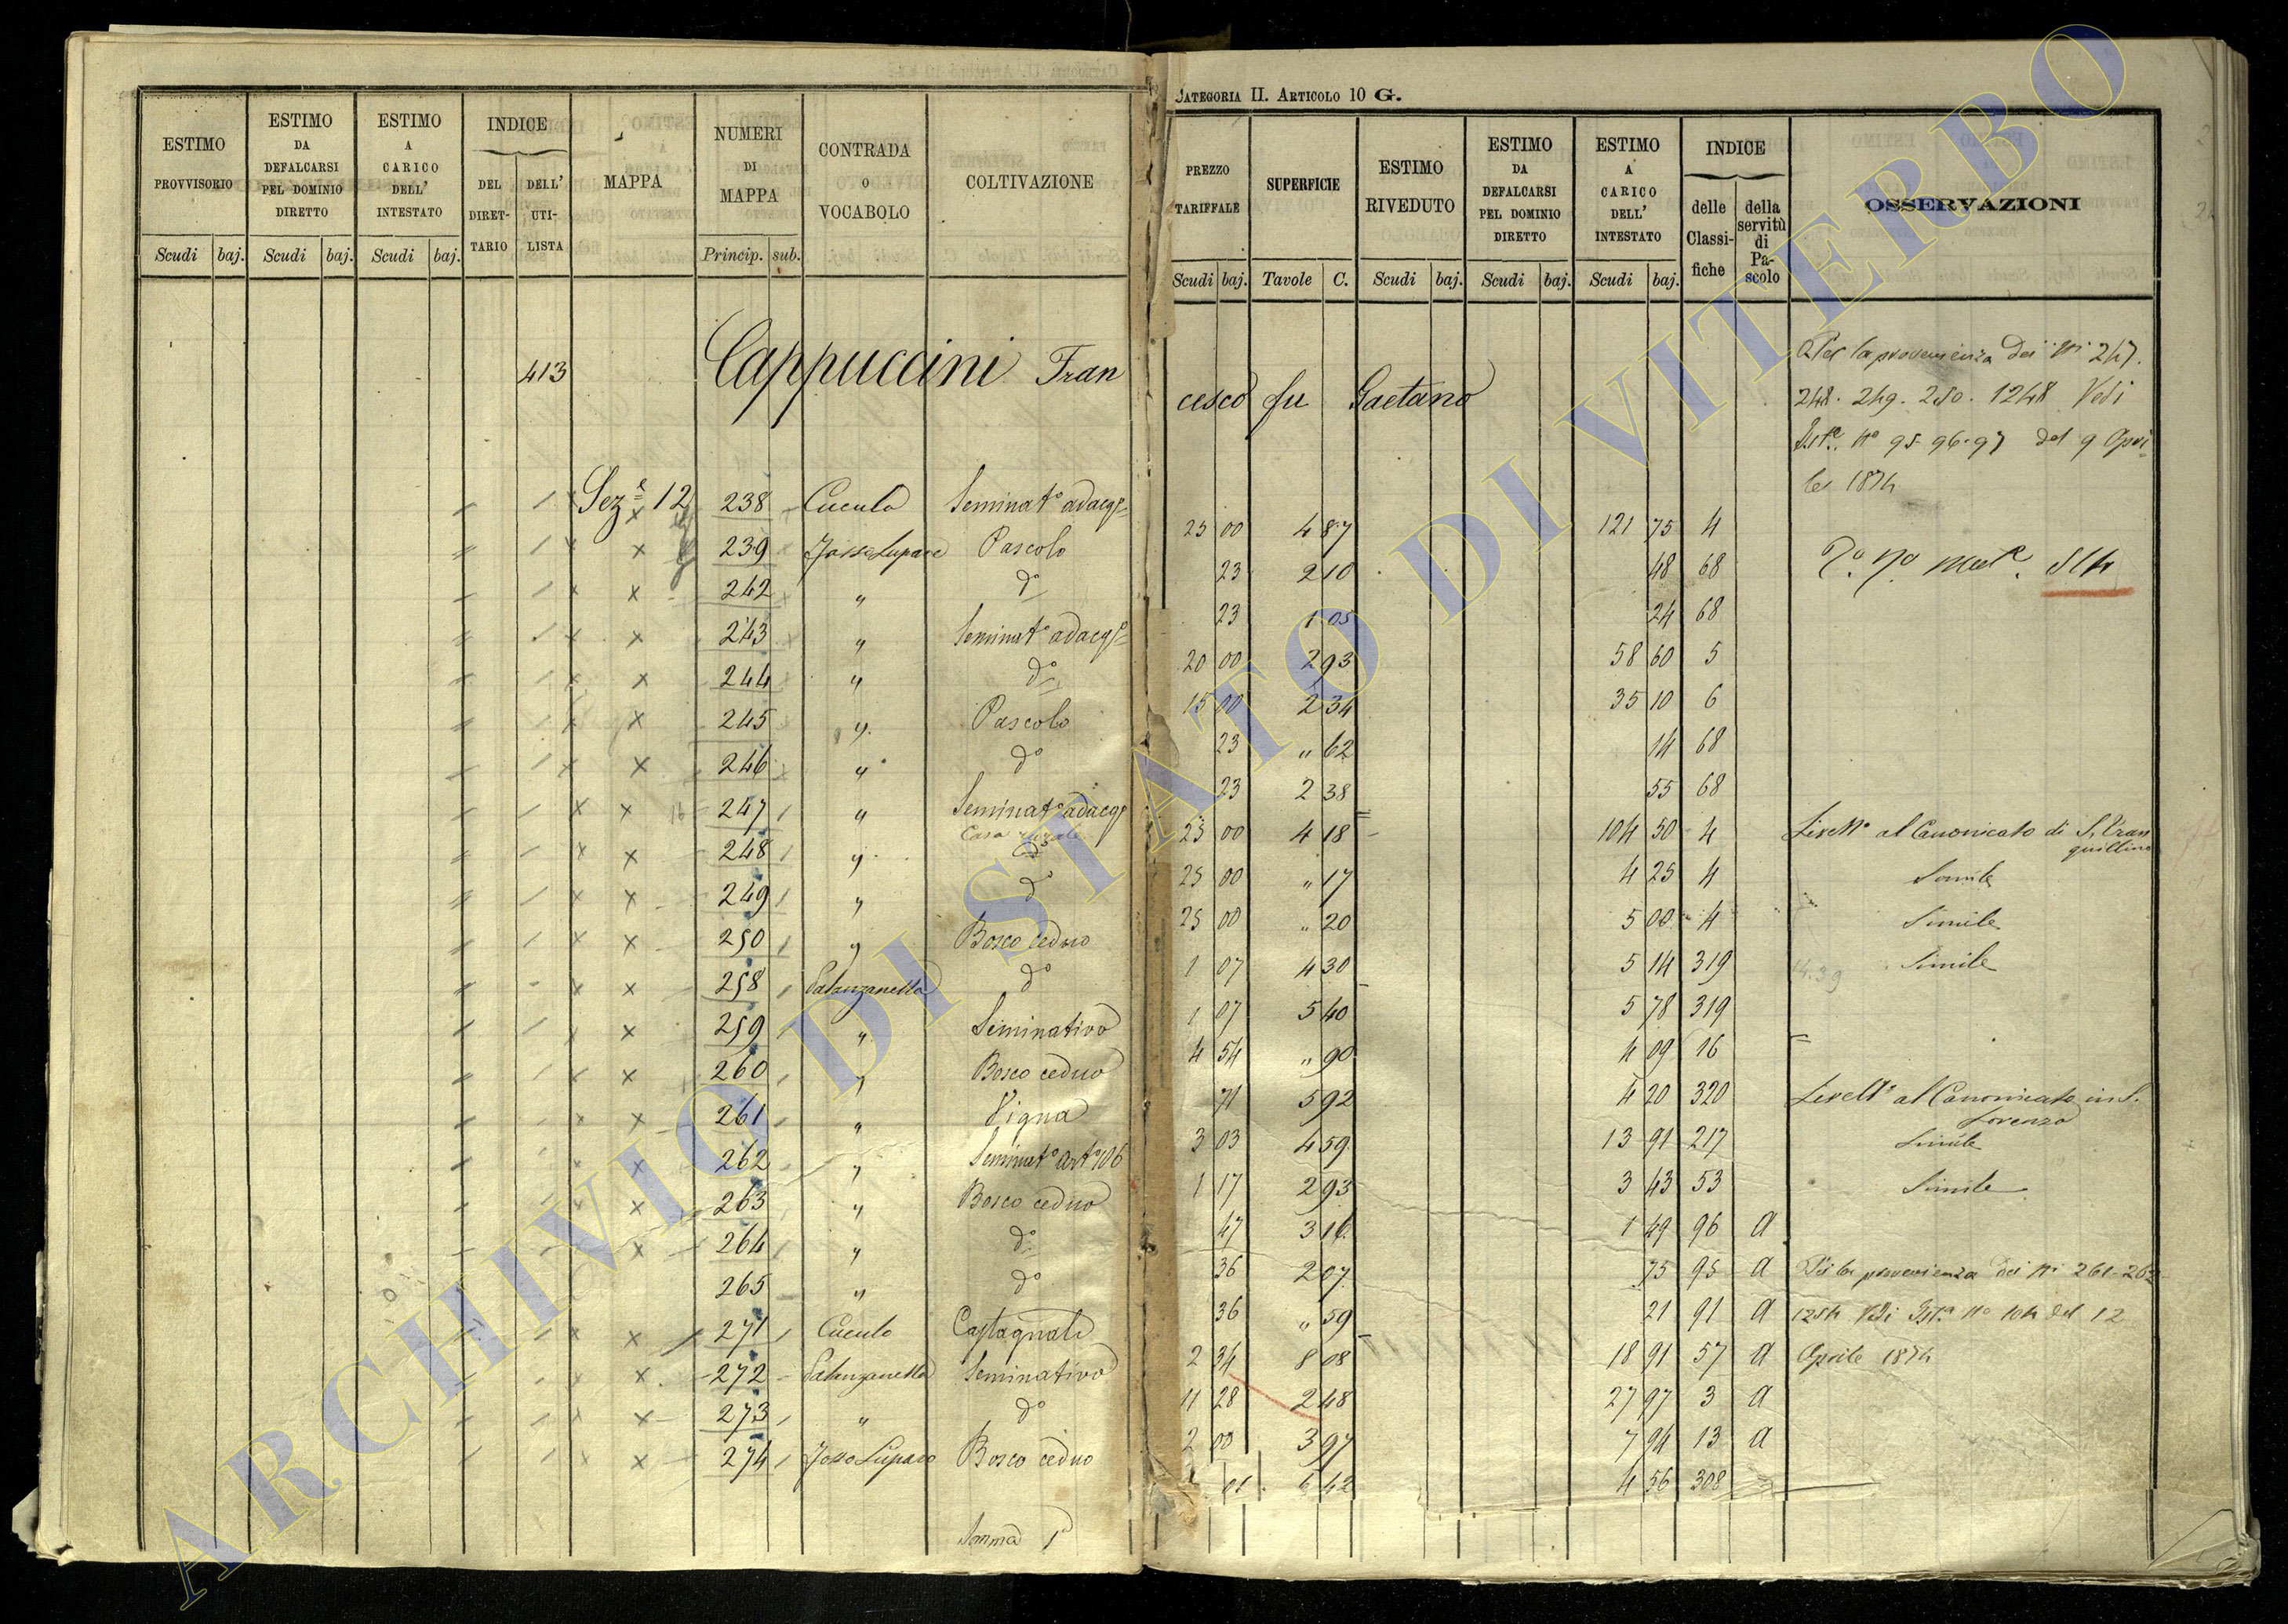 CATEGORIA II. ARTICOLO 10 G.
ESTIMO PROVVISORIO | ESTIMO DA DEFALCARSI PEL DOMINIO DIRETTO | ESTIMO A CARICO DELL' INTESTATO | INDICE DEL DIRET-TARIO | DELL' UTI-LISTA | MAPPA | NUMERI DI MAPPA | CONTRADA O VOCABOLO | COLTIVAZIONE | PREZZO TARIFFALE | SUPERFICIE | ESTIMO RIVEDUTO | ESTIMO DA DEFALCARSI PEL DOMINIO DIRETTO | ESTIMO A CARICO DELL' INTESTATO | INDICE delle Classi-fiche | della servitù di Pa-scolo | OSSERVAZIONI
Scudi | baj. | Scudi | baj. | Scudi | baj. | Princip. | sub. | Scudi | baj. | Tavole | C. | Scudi | baj. | Scudi | baj. | Scudi | baj.
413 Cappuccini Francesco fu Gaetano
Per la provenienza dei ni 247.
248. 249. 250. 1248 Vedi
Ista no 95-96-97 del 9 Apri
le 1874
Seze 12 238 Cuculo Seminato adacqo 25 00 4 87 121 75 4
239 Fosso Lupara Pascolo 23 2 10 48 68
242 " do 23 1 05 24 68
243 " Seminato adacqo 20 00 2 93 58 60 5
244 " do 15 00 2 34 35 10 6
245 " Pascolo 23 " 62 14 68
246 " do 23 2 38 55 68
247 " Seminato adacqo 25 00 4 18 104 50 4 Livello al Canonicato di S. Tranquillino
248 " Casa rurale 25 00 " 17 4 25 4 Simile
249 " do 25 00 " 20 5 00 4 Simile
250 " Bosco ceduo 1 07 4 30 5 14 319 Simile
258 Palanzanella do 1 07 5 40 5 78 319
259 " Seminativo 4 54 " 90 4 09 16
260 " Bosco ceduo 71 5 92 4 20 320 Livello al Canonicato in S. Lorenzo
261 " Vigna 3 03 4 59 13 91 217 Simile
262 " Seminato Arto 106 1 17 2 93 3 43 53 Simile
263 " Bosco ceduo 47 3 16 1 49 96 A
264 " do 36 2 07 75 95 A Per la provenienza dei ni 261-262
265 " do 36 " 59 21 91 A 1254 Vedi Ista no 104 del 12
271 Cuculo Castagnale 2 34 8 08 18 91 57 A Aprile 1874
272 Palanzanella Seminativo 11 28 2 48 27 97 3 A
273 " do 2 00 3 97 7 94 13 A
274 Fosso Lupara Bosco ceduo 6 42 4 56 308
Somma
ARCHIVIO DI STATO DI VITERBO